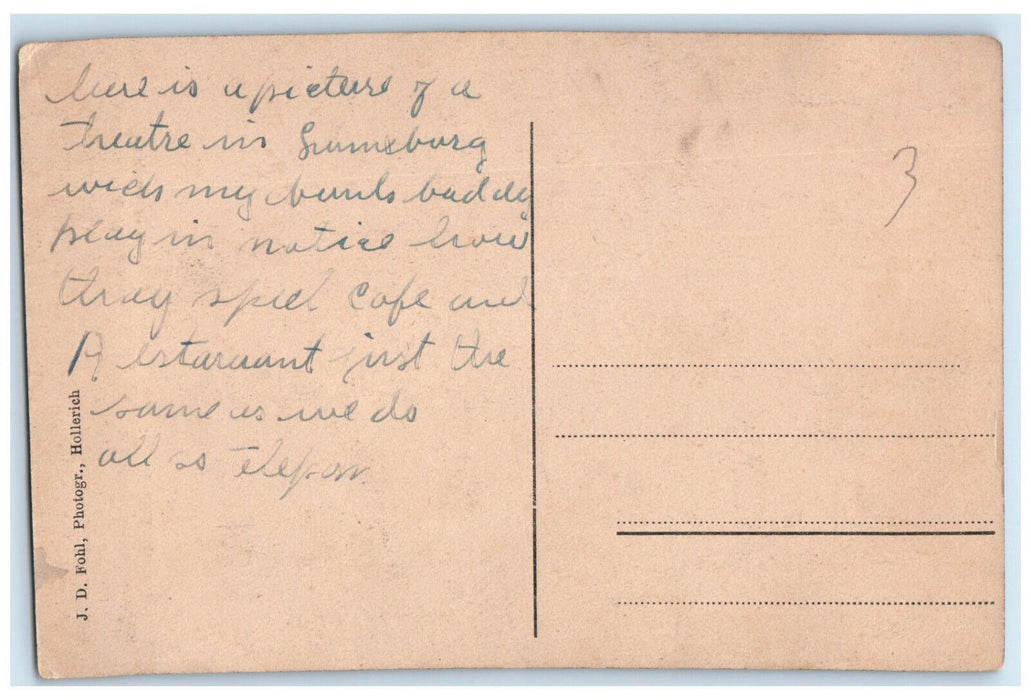 here is a picture of a
theatre in Luxemburg
wich my bunk buddy
play in notice how
thay spell cafe and
Restaruant just the
same as we do
all so
J. D. Fohl, Photogr., Hollerich
3